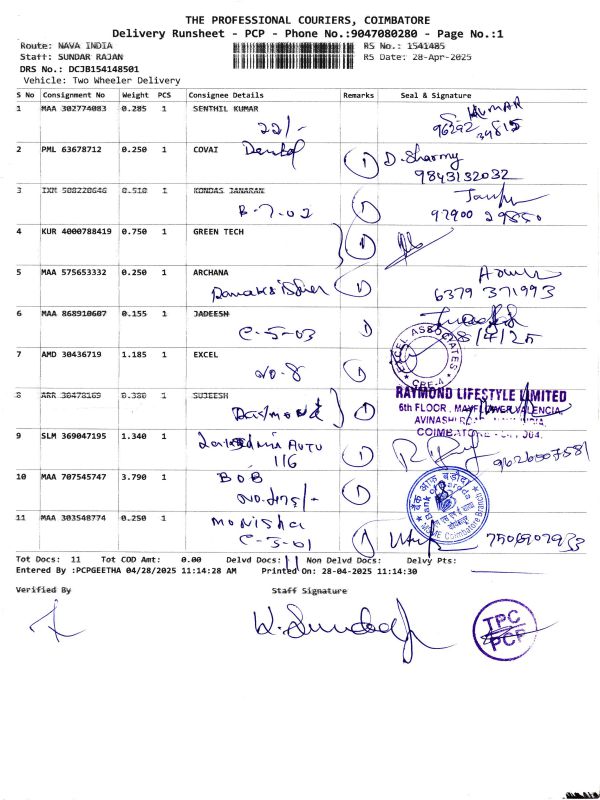 THE PROFESSIONAL COURIERS, COIMBATORE
Delivery Runsheet - PCP - Phone No.:9047080280 - Page No.:1
Route: NAVA INDIA
RS No.: 1541485
Staff: SUNDAR RAJAN
RS Date: 28-Apr-2025
DRS No.: DCJB154148501
Vehicle: Two Wheeler Delivery
S No Consignment No Weight PCS Consignee Details Remarks Seal & Signature
1 MAA 302774083 0.285 1 SENTHIL KUMAR KUMAR
22/-
2 PML 63678712 0.250 1 COVAI Dental 1 D. Sharmy
9843132032
3 IXM 508220646 0.510 1 KONDAS JANARAN
B-7-02 1
4 KUR 4000788419 0.750 1 GREEN TECH 1
5 MAA 575653332 0.250 1 ARCHANA
1 6379 371993
6 MAA 868910607 0.155 1 JADEESH
C-5-03 1 28/4/25
7 AMD 30436719 1.185 1 EXCEL
NO-8
EXCEL ASSOCIATES
CBE-4
8 ARR 30478169 0.380 1 SUJEESH
Raymond 1
RAYMOND LIFESTYLE LIMITED
6th FLOOR, MAYFLOWER VALENCIA,
AVINASHI
COIMBATORE
9 SLM 369047195 1.340 1 AUTO
116 1 9626507581
10 MAA 707545747 3.790 1 BOB
1
बैंक ऑफ बड़ौदा
Bank of Baroda
Coimbatore Branch
11 MAA 303548774 0.250 1 Monisha
C-3-01 1
Tot Docs: 11 Tot COD Amt: 0.00 Delvd Docs: 11 Non Delvd Docs: Delvy Pts:
Entered By :PCPGEETHA 04/28/2025 11:14:28 AM Printed On: 28-04-2025 11:14:30
Verified By Staff Signature
TPC
PCP